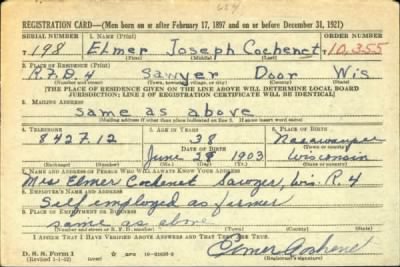 REGISTRATION CARD—(Men born on or after February 17, 1897 and on or before December 31, 1921)
SERIAL NUMBER 1. NAME (Print) ORDER NUMBER
T 198 Elmer Joseph Cochenet 10,355
(First) (Middle) (Last)
2. PLACE OF RESIDENCE (Print)
R.F.D. 4 Sawyer Door Wis
(Number and street) (Town, township, village, or city) (County) (State)
[THE PLACE OF RESIDENCE GIVEN ON THE LINE ABOVE WILL DETERMINE LOCAL BOARD
JURISDICTION; LINE 2 OF REGISTRATION CERTIFICATE WILL BE IDENTICAL]
3. MAILING ADDRESS
same as above
[Mailing address if other than place indicated on line 2. If same insert word same]
4. TELEPHONE 5. AGE IN YEARS 6. PLACE OF BIRTH
8427.12 38 Nasewaupee
DATE OF BIRTH (Town or county)
June 1903 Wisconsin
(Exchange) (Number) (Mo.) (Day) (Yr.) (State or country)
7. NAME AND ADDRESS OF PERSON WHO WILL ALWAYS KNOW YOUR ADDRESS
Mrs Elmer Cochenet Sawyer, Wis. R. 4
8. EMPLOYER'S NAME AND ADDRESS
Self employed as farmer
9. PLACE OF EMPLOYMENT OR BUSINESS
same as above
(Number and street or R. F. D. number) (Town) (County) (State)
I AFFIRM THAT I HAVE VERIFIED ABOVE ANSWERS AND THAT THEY ARE TRUE.
D. S. S. Form 1
(Revised 1-1-42) (over)
Elmer Cochenet
(Registrant's signature)